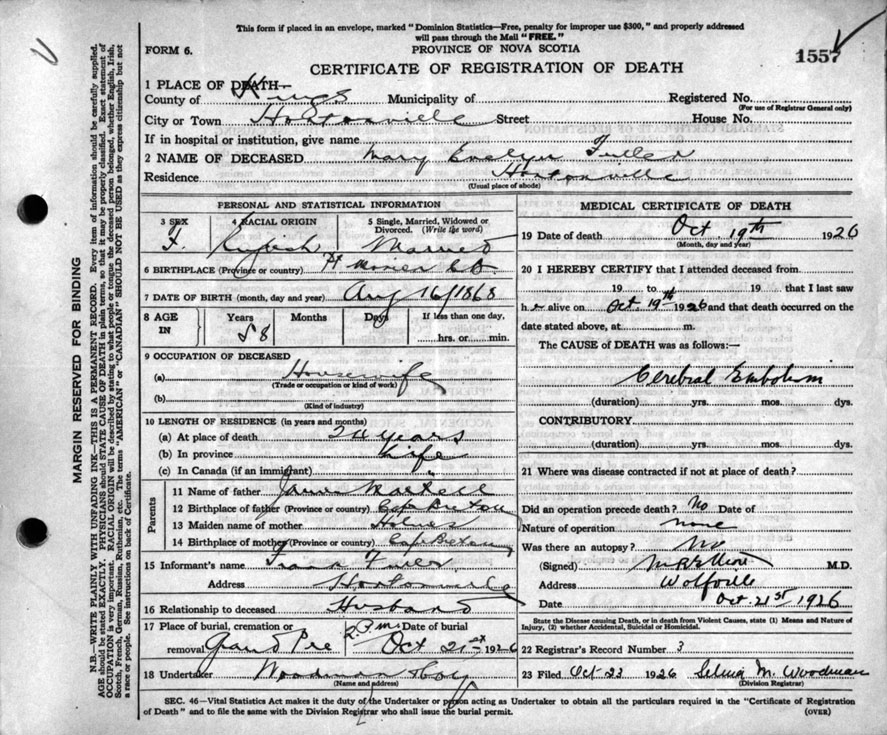 This form if placed in an envelope, marked "Dominion Statistics—Free, penalty for improper use $300," and properly addressed
will pass through the Mail "FREE."
FORM 6.
PROVINCE OF NOVA SCOTIA
1557
CERTIFICATE OF REGISTRATION OF DEATH
1 PLACE OF DEATH—
County of Kings Municipality of Registered No.
(For use of Registrar General only)
City or Town Hortonville Street House No.
If in hospital or institution, give name
2 NAME OF DECEASED Mary Evelyn Fuller
Residence Hortonville
(Usual place of abode)
PERSONAL AND STATISTICAL INFORMATION
3 SEX 4 RACIAL ORIGIN 5 Single, Married, Widowed or Divorced. (Write the word)
F. English Married
6 BIRTHPLACE (Province or country) Pt Morien C.B.
7 DATE OF BIRTH (month, day and year) Aug 16/1868
8 AGE IN Years Months Days If less than one day,
58 hrs. or min.
9 OCCUPATION OF DECEASED
(a) Housewife
(Trade or occupation or kind of work)
(b)
(Kind of industry)
10 LENGTH OF RESIDENCE (in years and months)
(a) At place of death 24 years
(b) In province Life
(c) In Canada (if an immigrant) "
Parents
11 Name of father James Martell
12 Birthplace of father (Province or country) Cap Breton
13 Maiden name of mother Holmes
14 Birthplace of mother (Province or country) Cap Breton
15 Informant's name Frank Fuller
Address Hortonville
16 Relationship to deceased Husband
17 Place of burial, cremation or 2 P.M.
removal Grand Pre Oct 21st 1926
18 Undertaker Woodman & Coy
(Name and address)
MEDICAL CERTIFICATE OF DEATH
19 Date of death Oct. 19th 1926
(Month, day and year)
20 I HEREBY CERTIFY that I attended deceased from
19 to 19 that I last saw
her alive on Oct. 19th 1926 and that death occurred on the
date stated above, at m.
The CAUSE OF DEATH was as follows:—
Cerebral Embolism
(duration) yrs. mos. dys.
CONTRIBUTORY
(duration) yrs. mos. dys.
21 Where was disease contracted if not at place of death?
Did an operation precede death? No Date of
Nature of operation none
Was there an autopsy? No
(Signed) M.R. Elliott M.D.
Address Wolfville
Date Oct. 21st 1926
State the Disease causing Death, or in death from Violent Causes, state (1) Means and Nature of
Injury, (2) whether Accidental, Suicidal or Homicidal.
22 Registrar's Record Number 3
23 Filed Oct 23 1926 Selma M. Woodman
(Division Registrar)
SEC. 46—Vital Statistics Act makes it the duty of the Undertaker or person acting as Undertaker to obtain all the particulars required in the "Certificate of Registration
of Death" and to file the same with the Division Registrar who shall issue the burial permit. (OVER)
MARGIN RESERVED FOR BINDING
N.B.—WRITE PLAINLY WITH UNFADING INK—THIS IS A PERMANENT RECORD. Every item of information should be carefully supplied.
AGE should be stated EXACTLY. PHYSICIANS should STATE CAUSE OF DEATH in plain terms, so that it may be properly classified. Exact statement of
OCCUPATION is very important. RACIAL ORIGIN will be described by stating to what people or tongue the deceased person belonged, whether English, Irish,
Scotch, French, German, Russian, Ruthenian, etc. The terms "AMERICAN" or "CANADIAN" SHOULD NOT BE USED as they express citizenship but not
a race or people. See instructions on back of Certificate.